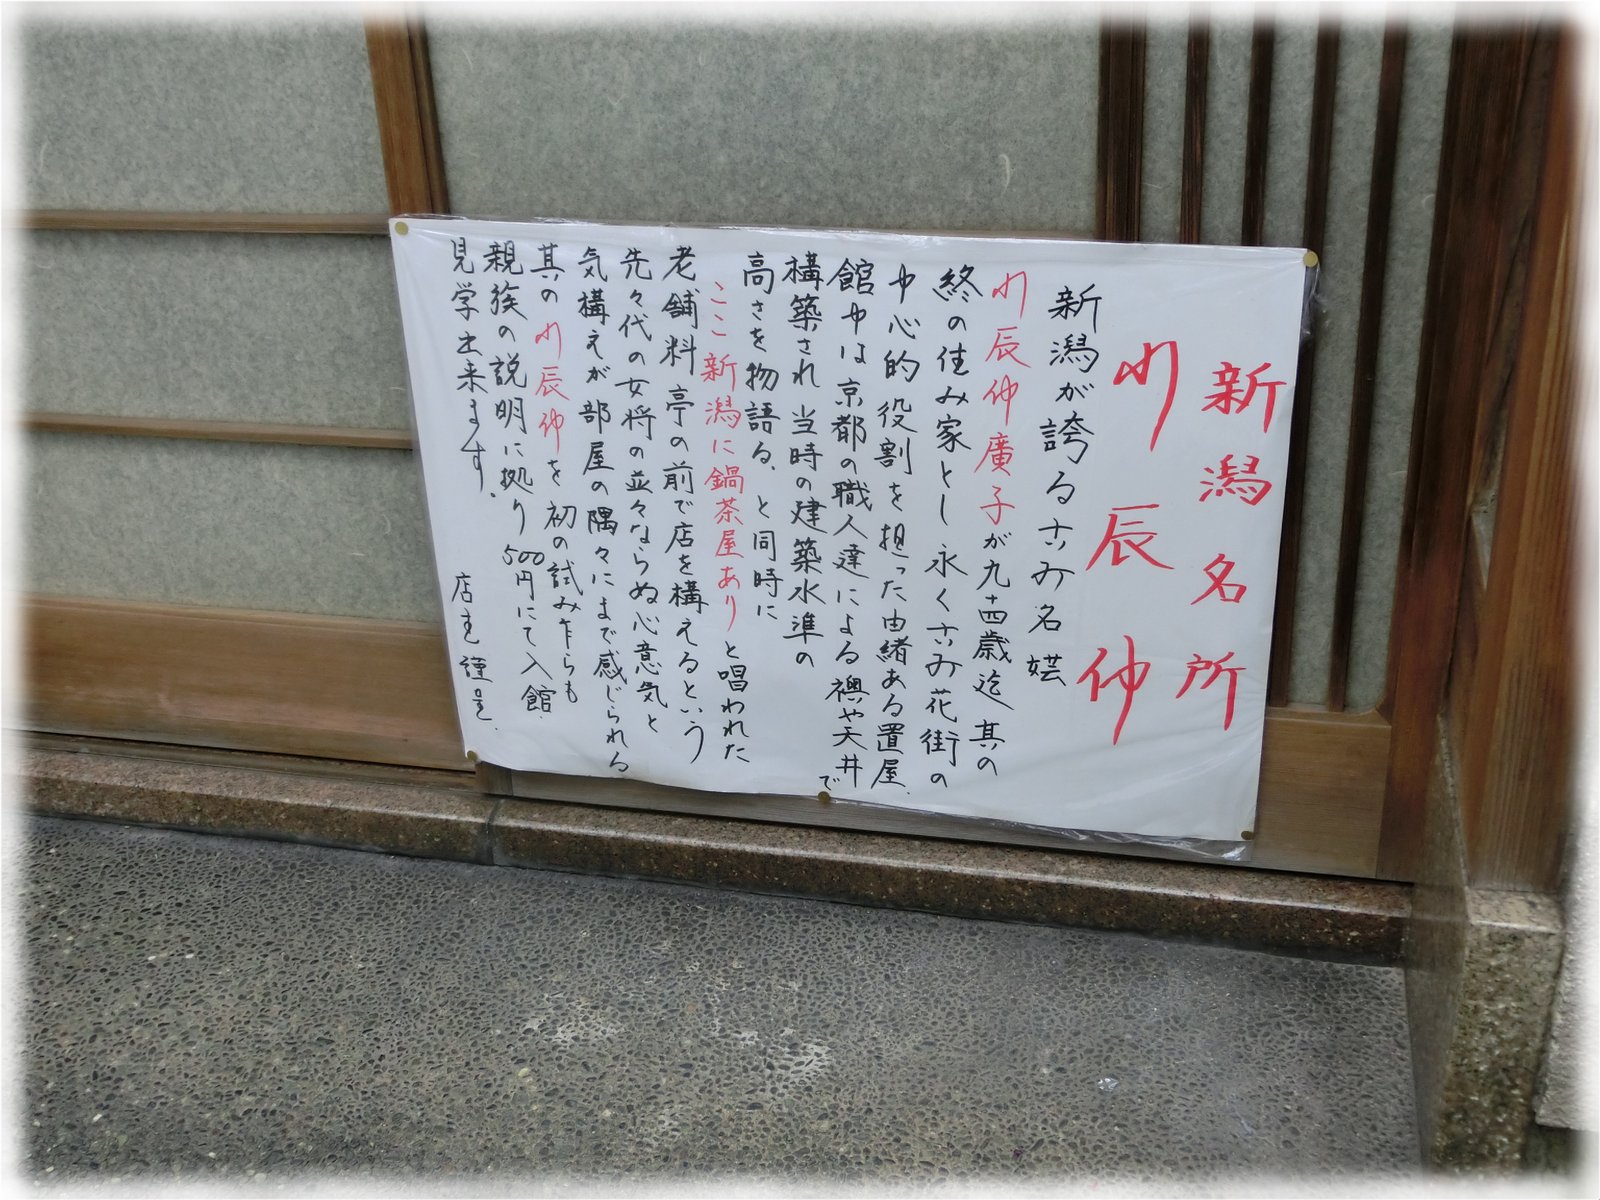 新潟名所
川辰仲
新潟が誇る古町名妓
川辰仲廣子が九十四歳迄其の
終の住み家とし永く古町花街の
中心的役割を担った由緒ある置屋
館中は京都の職人達による襖や天井で
構築され当時の建築水準の
高さを物語る、と同時に
ここ新潟に鍋茶屋ありと唱われた
老舗料亭の前で店を構えるという
先々代の女将の並々ならぬ心意気と
気構えが部屋の隅々にまで感じられる
其の川辰仲を初の試み乍らも
親族の説明に拠り500円にて入館
見学出来ます。
店主謹白